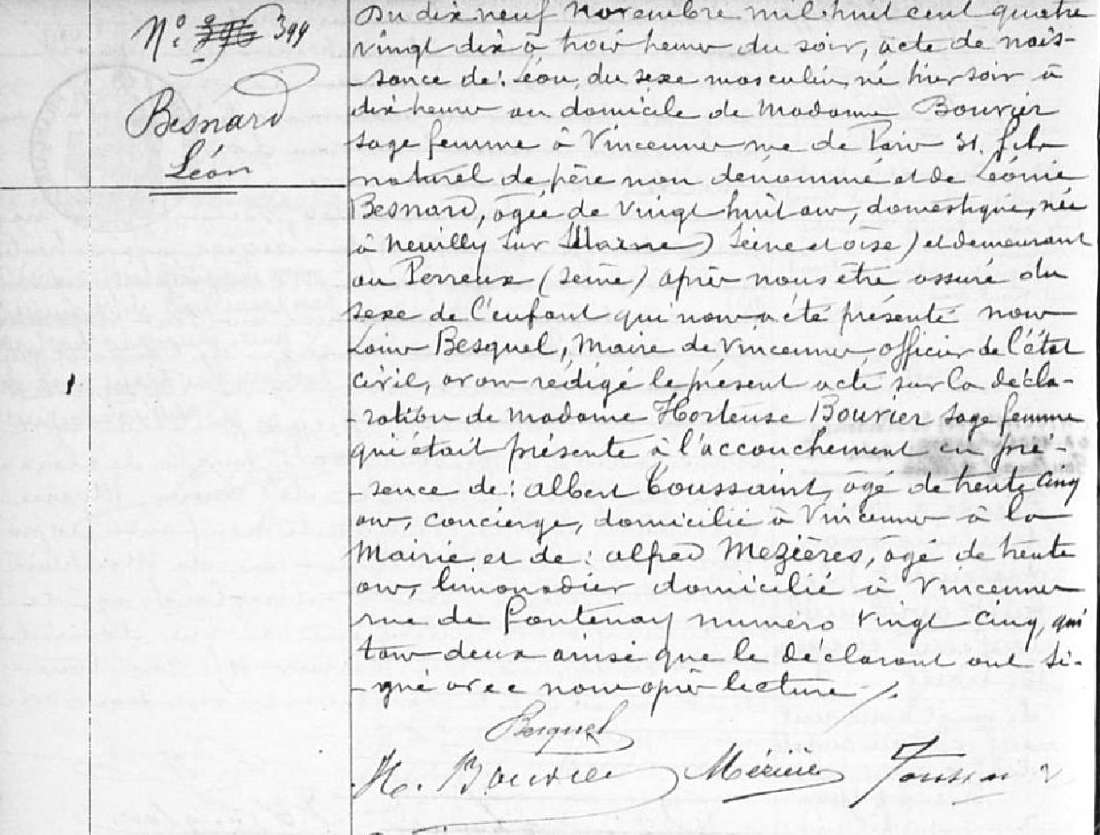 N.º 399
Besnard
Léon
Du dix neuf novembre mil huit cent quatre
vingt dix à trois heures du soir, acte de nais-
-sance de: Léon, du sexe masculin, né hier soir à
dix heures au domicile de Madame Bouvier
sage femme à Vincennes rue de Paris 31. fils
naturel de père non dénommé et de Léonie
Besnard, âgée de vingt huit ans, domestique, née
à Neuilly sur Marne (Seine et oise) et demeurant
au Perreux (Seine) après nous être assuré du
sexe de l'enfant qui nous a été présenté nous
Louis Besquel, Maire de Vincennes officier de l'état
civil, avons rédigé le présent acte sur la décla-
ration de madame Hortense Bouvier sage femme
qui était présente à l'accouchement en pré-
-sence de: Albert Toussaint, âgé de trente cinq
ans, concierge, domicilié à Vincennes à la
Mairie et de: Alfred Mezières, âgé de trente
ans, limonadier domicilié à Vincennes
rue de Fontenay numéro vingt cinq, qui
tous deux ainsi que le déclarant ont si-
-gné avec nous après lecture
Besquel
H. Bouvier Mézières Toussaint